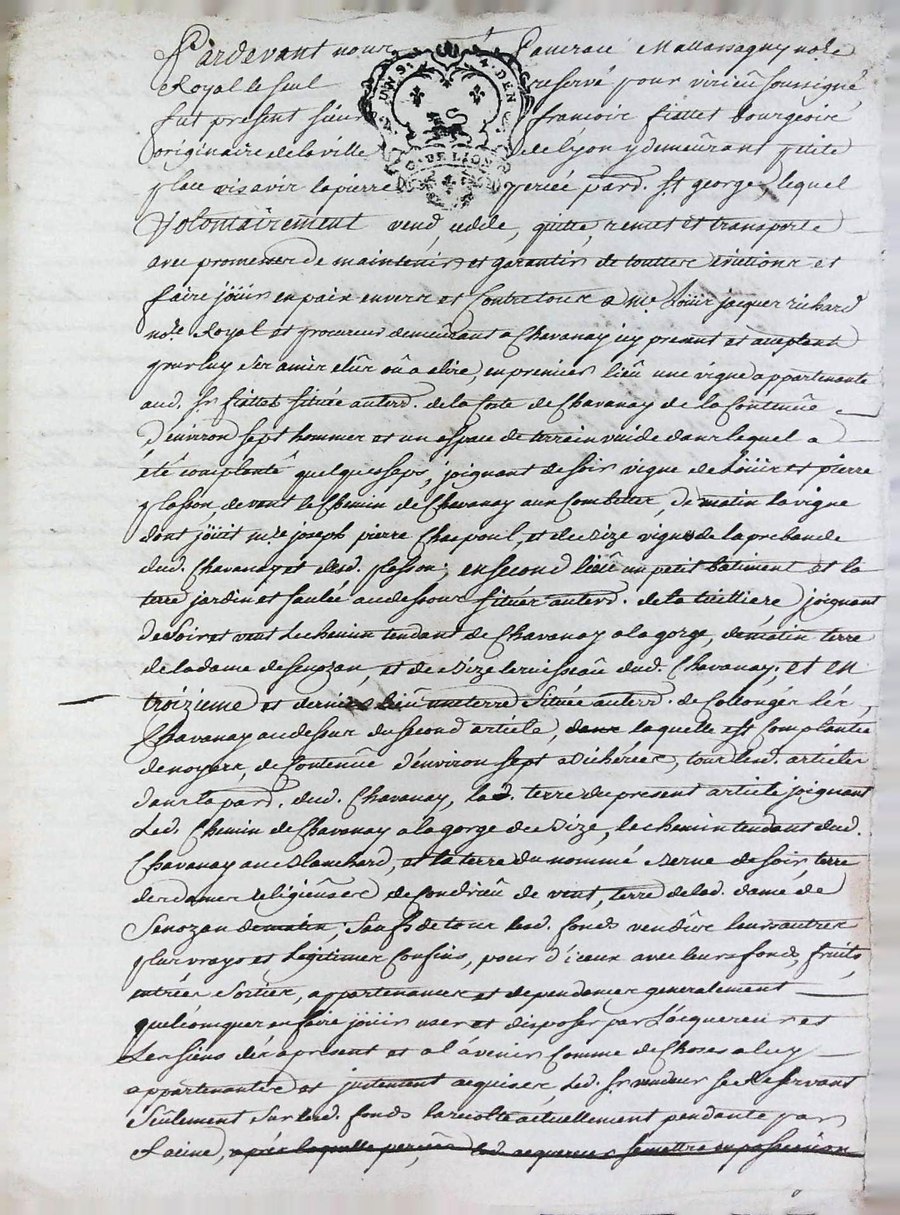 Pardevant nous Pancrace Mattassagny nore
Royal le seul reservé pour virieû soussigné,
fut present sieur francois fiattet bourgeois
originaire de la ville de lÿon y demeûrant petite
place vis avis la pierre percéé pard. St george, lequel
Volontairement vend, cedde, quitte, remet et transporte
avec promesses de maintenir et garantir de touttes évictions et
faire joüir en paix envers et Contre tous a me Loüis jacques richard
nore Royal et procureur demeûrant a Chavanay icy present et acceptant
pour luy ses amis elûs oû a elire, en premier lieû une vigne appartenante
aud. sr fiattet sitüée auterr. de la Coste de Chavanay de la Contenüe
d'environ sept hommes et un espace de terrein vuide dans lequel a
été complanté quelques seps, joignant de soir vigne de Loüis et pierre
plasson, de vent le Chemin de Chavanay aux Combettes, de matin la vigne
dont joüit mre joseph pierre Charpouil, et de bize vigne de la prebande
dud. Chavanay et dud. plasson; en second lieû un petit bâtiment et la
terre jardin et saulée au dessous sitües auterr. de la tuilliere, joignant
de soir et vent Le chemin tendant de Chavanay a la gorge, de matin terre
de la dame de senozan, et de bize le ruisseaû dud. Chavanay; et en
troizieme et dernier lieû une terre sitüée auterr. de Collonges léz
Chavanay au dessus du second article, dans laquelle est Complantée
de noyers, de Contenüe d'environ sept bicherées, tous lesd. articles
dans la parr. dud. Chavanay, lad. terre du present article joignant
Led. Chemin de Chavanay a la gorge de bize, le chemin tendant dud.
Chavanay au Blanchard, et la terre du nommé verne de soir, terre
des dames religieûses de Condrieû de vent, terre de lad. dame de
Senozan de matin; Saufs de tous lesd. fonds vendûs leurs autres
plus vrays et Legitimes Confins, pour d'iceux avec leurs fonds, fruits,
entrées Sorties, appartenances et dependances generalement
quelconques en faire joüir user et disposer par L'acquereur et
Les siens dés a present et a l'ávenir Comme de Choses a luy
appartenantes et justement acquises, Led. sr vendeur se Reservant
seulement sur lesd. fonds la recolte actuellement pendante par
Racine, après laquelle perçûe led. acquereur se mettra en possession